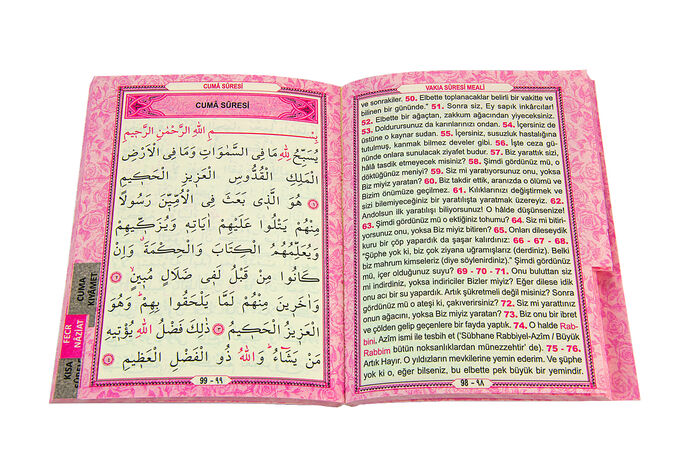 CUMÂ SÛRESİ
CUMÂ SÛRESİ
بِسْمِ اللهِ الرَّحْمٰنِ الرَّحِيمِ
يُسَبِّحُ لِلّٰهِ مَا فِى السَّمٰوَاتِ وَمَا فِى الْاَرْضِ
الْمَلِكِ الْقُدُّوسِ الْعَزِيزِ الْحَكِيمِ ﴿١﴾
هُوَ الَّذِى بَعَثَ فِى الْاُمِّيِّنَ رَسُولًا
مِنْهُمْ يَتْلُوا عَلَيْهِمْ اٰيَاتِهِ وَيُزَكِّيهِمْ
وَيُعَلِّمُهُمُ الْكِتَابَ وَالْحِكْمَةَ وَاِنْ
كَانُوا مِنْ قَبْلُ لَفِى ضَلَالٍ مُبِينٍ ﴿٢﴾
وَاٰخَرِينَ مِنْهُمْ لَمَّا يَلْحَقُوا بِهِمْ وَهُوَ
الْعَزِيزُ الْحَكِيمُ ﴿٣﴾ ذٰلِكَ فَضْلُ اللهِ يُؤْتِيهِ
مَنْ يَشَاءُ وَاللهُ ذُو الْفَضْلِ الْعَظِيمِ ﴿٤﴾
99 - ٩٩
CUMA
KIYÂMET
FECR
NÂZİAT
KISA
VAKIA SÛRESİ MEALİ
ve sonrakiler. 50. Elbette toplanacaklar belirli bir vakitte ve
bilinen bir gününde.” 51. Sonra siz, Ey sapık inkârcılar!
52. Elbette bir ağaçtan, zakkum ağacından yiyeceksiniz.
53. Doldurursunuz da karınlarınızı ondan. 54. İçersiniz de
üstüne o kaynar sudan. 55. İçersiniz, susuzluk hastalığına
tutulmuş, kanmak bilmez develer gibi. 56. İşte ceza gü-
nünde onlara sunulacak ziyafet budur. 57. Biz yarattık sizi,
hâlâ tasdik etmeyecek misiniz? 58. Şimdi gördünüz mü, o
döktüğünüz meniyi? 59. Siz mi yaratıyorsunuz onu, yoksa
Biz miyiz yaratan? 60. Biz takdir ettik, aranızda o ölümü ve
Bizim önümüze geçilmez. 61. Kılıklarınızı değiştirmek ve
sizi bilemiyeceğiniz bir yaratılışta yaratmak üzereyiz. 62.
Andolsun ilk yaratılışı biliyorsunuz! O hâlde düşünsenize!
63. Şimdi gördünüz mü o ektiğiniz tohumu? 64. Siz mi bitiri-
yorsunuz onu, yoksa Biz miyiz bitiren? 65. Onları dileseydik
kuru bir çöp yapardık da şaşar kalırdınız: 66 - 67 - 68.
“Şüphe yok ki, biz çok ziyana uğramışlarız (derdiniz). Belki
biz mahrum kimseleriz (diye söylenirdiniz).” Şimdi gördünüz
mü, içer olduğunuz suyu? 69 - 70 - 71. Onu buluttan siz
mi indirdiniz, yoksa indiriciler Bizler miyiz? Eğer dilesek idik
onu acı bir su yapardık. Artık şükretmeli değil misiniz? Sonra
gördünüz mü o ateşi ki, çakıverirsiniz? 72. Siz mi yarattınız
onun ağacını, yoksa Biz miyiz yaratan? 73. Biz onu bir ibret
ve çölden gelip geçenlere bir fayda yaptık. 74. O halde Rab-
bini. Azîm ismi ile tesbih et (‘Sübhane Rabbiyel-Azîm / Büyük
Rabbim bütün noksanlıklardan münezzehtir’ de). 75 - 76.
Artık Hayır. O yıldızların mevkilerine yemin ederim. Ve şüphe
yok ki o, eğer bilseniz, bu elbette pek büyük bir yemindir.
98 - ٩٨